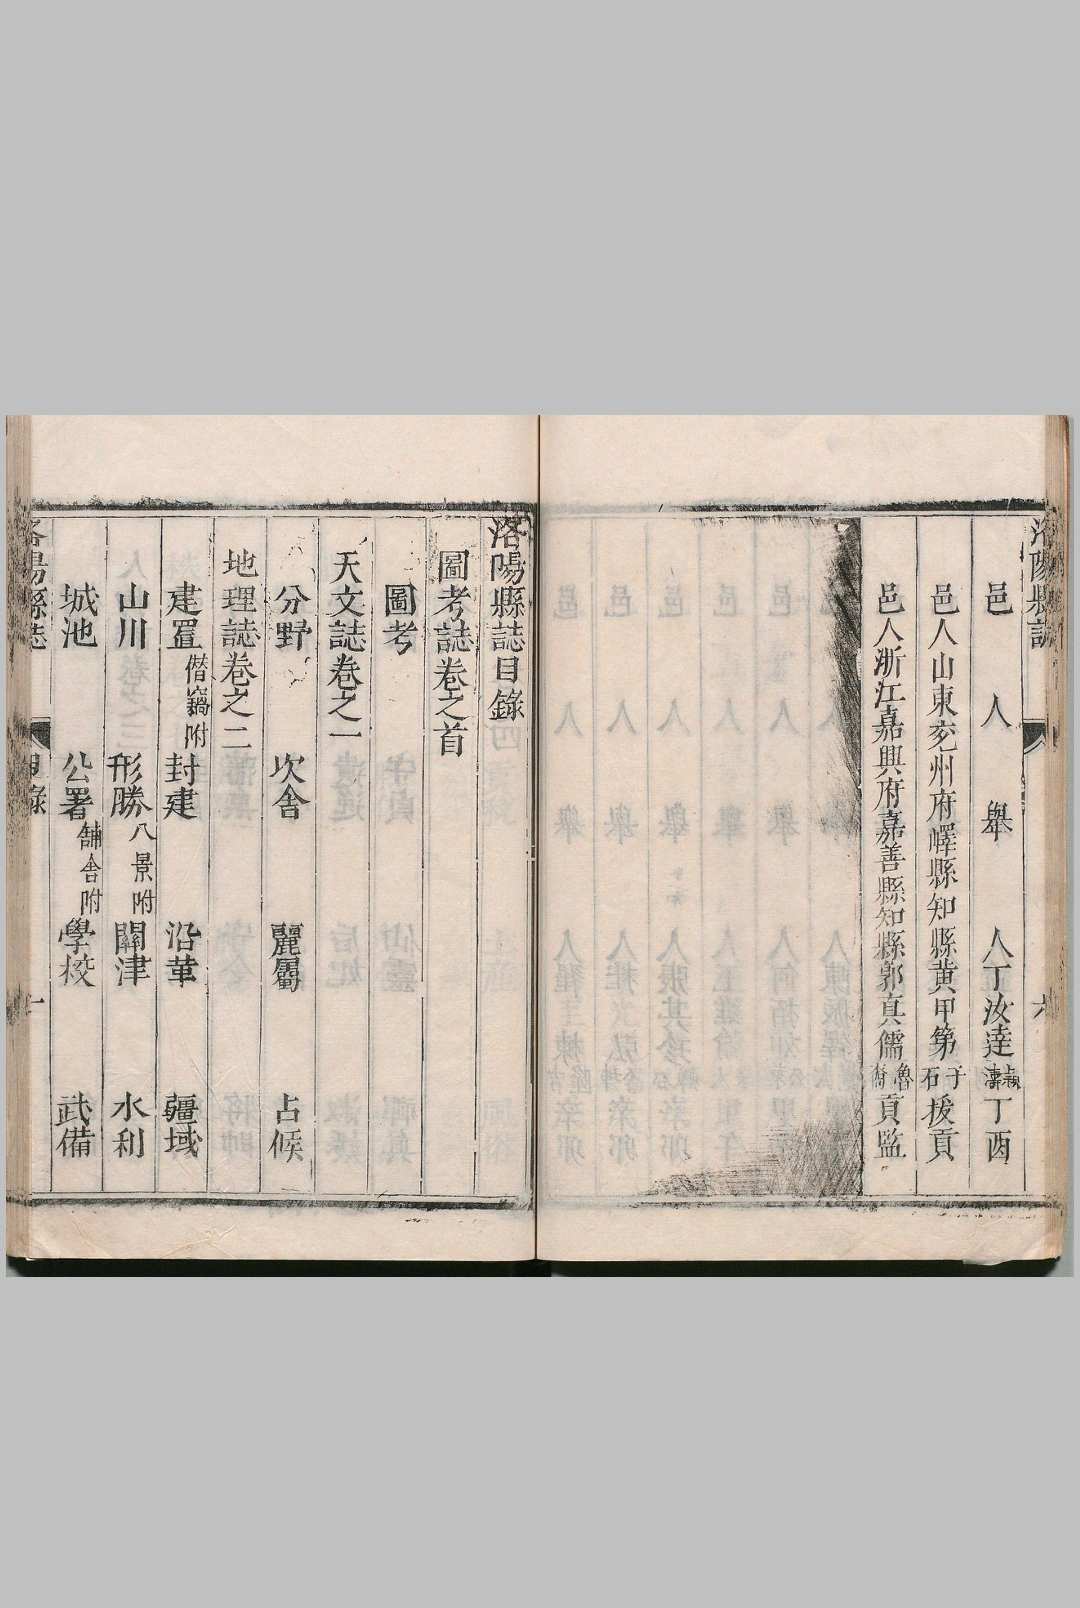 洛陽縣誌
六
邑人舉人丁汝達潁濤丁酉
邑人山東兗州府嶧縣知縣黃甲第子石拔貢
邑人浙江嘉興府嘉善縣知縣郭真儒魯齋貢監
洛陽縣誌目錄
圖考誌卷之首
圖考
天文誌卷之一
分野 次舍 麗屬 占候
地理誌卷之二
建置僭竊附 封建 沿革 疆域
山川 形勝八景附 關津 水利
城池 公署舖舍附 學校 武備
洛陽縣誌 目錄 一